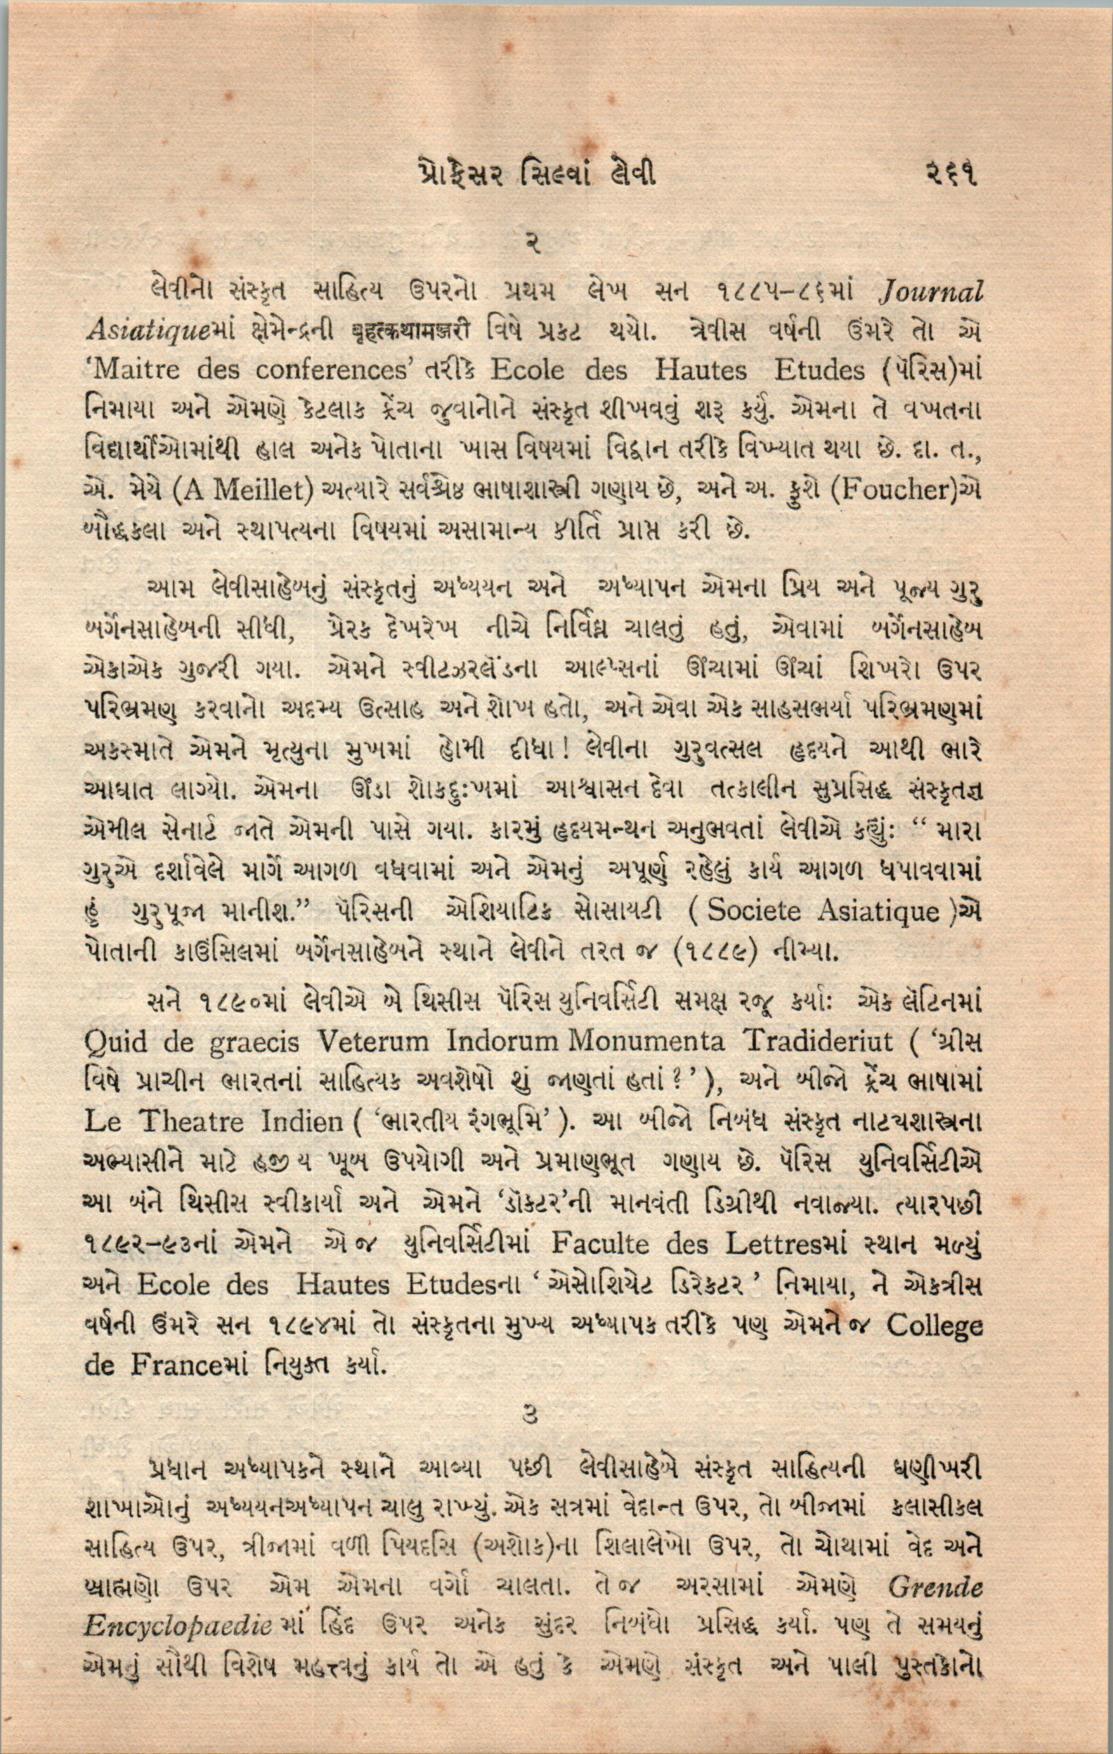 પ્રોફેસર સિલ્વાં લેવી ૨૬૧
૨
લેવીનો સંસ્કૃત સાહિત્ય ઉપરનો પ્રથમ લેખ સન ૧૮૮૫–૮૬માં Journal
Asiatiqueમાં ક્ષેમેન્દ્રની बृहत्कथामञ्जरी વિષે પ્રકટ થયો. ત્રેવીસ વર્ષની ઉંમરે તો એ
‘Maitre des conferences’ તરીકે Ecole des Hautes Etudes (પૅરિસ)માં
નિમાયા અને એમણે કેટલાક ફ્રેંચ જુવાનોને સંસ્કૃત શીખવવું શરૂ કર્યું. એમના તે વખતના
વિદ્યાર્થીઓમાંથી હાલ અનેક પોતાના ખાસ વિષયમાં વિદ્વાન તરીકે વિખ્યાત થયા છે. દા. ત.,
એ. મેયે (A Meillet) અત્યારે સર્વશ્રેષ્ઠ ભાષાશાસ્ત્રી ગણાય છે, અને અ. ફુશે (Foucher)એ
બૌદ્ધકલા અને સ્થાપત્યના વિષયમાં અસામાન્ય કીર્તિ પ્રાપ્ત કરી છે.
આમ લેવીસાહેબનું સંસ્કૃતનું અધ્યયન અને અધ્યાપન એમના પ્રિય અને પૂજ્ય ગુરુ
બર્ગેનસાહેબની સીધી, પ્રેરક દેખરેખ નીચે નિર્વિઘ્ન ચાલતું હતું, એવામાં બર્ગેનસાહેબ
એકાએક ગુજરી ગયા. એમને સ્વીટઝરલૅંડના આલ્પ્સનાં ઊંચામાં ઊંચાં શિખરો ઉપર
પરિભ્રમણ કરવાનો અદમ્ય ઉત્સાહ અને શોખ હતો, અને એવા એક સાહસભર્યા પરિભ્રમણમાં
અકસ્માતે એમને મૃત્યુના મુખમાં હોમી દીધા! લેવીના ગુરુવત્સલ હૃદયને આથી ભારે
આઘાત લાગ્યો. એમના ઊંડા શોકદુઃખમાં આશ્વાસન દેવા તત્કાલીન સુપ્રસિદ્ધ સંસ્કૃતજ્ઞ
એમીલ સેનાર્ટ જાતે એમની પાસે ગયા. કારમું હૃદયમન્થન અનુભવતાં લેવીએ કહ્યું: “ મારા
ગુરુએ દર્શાવેલે માર્ગે આગળ વધવામાં અને એમનું અપૂર્ણ રહેલું કાર્ય આગળ ધપાવવામાં
હું ગુરુપૂજા માનીશ.” પૅરિસની એશિયાટિક સોસાયટી ( Societe Asiatique )એ
પોતાની કાઉંસિલમાં બર્ગેનસાહેબને સ્થાને લેવીને તરત જ (૧૮૮૯) નીમ્યા.
સને ૧૮૯૦માં લેવીએ બે થિસીસ પૅરિસ યુનિવર્સિટી સમક્ષ રજૂ કર્યાઃ એક લૅટિનમાં
Quid de graecis Veterum Indorum Monumenta Tradideriut ( ‘ગ્રીસ
વિષે પ્રાચીન ભારતનાં સાહિત્યક અવશેષો શું જાણતાં હતાં?’), અને બીજો ફ્રેંચ ભાષામાં
Le Theatre Indien ( ‘ભારતીય રંગભૂમિ’). આ બીજો નિબંધ સંસ્કૃત નાટ્યશાસ્ત્રના
અભ્યાસીને માટે હજી ય ખૂબ ઉપયોગી અને પ્રમાણભૂત ગણાય છે. પૅરિસ યુનિવર્સિટીએ
આ બંને થિસીસ સ્વીકાર્યા અને એમને ‘ડૉક્ટર’ની માનવંતી ડિગ્રીથી નવાજ્યા. ત્યારપછી
૧૮૯૨–૯૩નાં એમને એ જ યુનિવર્સિટીમાં Faculte des Lettresમાં સ્થાન મળ્યું
અને Ecole des Hautes Etudesના ‘ એસોશિયેટ ડિરેકટર ’ નિમાયા, ને એકત્રીસ
વર્ષની ઉંમરે સન ૧૮૯૪માં તો સંસ્કૃતના મુખ્ય અધ્યાપક તરીકે પણ એમને જ College
de Franceમાં નિયુક્ત કર્યા.
૩
પ્રધાન અધ્યાપકને સ્થાને આવ્યા પછી લેવીસાહેબે સંસ્કૃત સાહિત્યની ઘણીખરી
શાખાઓનું અધ્યયનઅધ્યાપન ચાલુ રાખ્યું. એક સત્રમાં વેદાન્ત ઉપર, તો બીજામાં કલાસીકલ
સાહિત્ય ઉપર, ત્રીજામાં વળી પિયદસિ (અશોક)ના શિલાલેખો ઉપર, તો ચોથામાં વેદ અને
બ્રાહ્મણો ઉપર એમ એમના વર્ગો ચાલતા. તે જ અરસામાં એમણે Grende
Encyclopaedie માં હિંદ ઉપર અનેક સુંદર નિબંધો પ્રસિદ્ધ કર્યા. પણ તે સમયનું
એમનું સૌથી વિશેષ મહત્ત્વનું કાર્ય તો એ હતું કે એમણે સંસ્કૃત અને પાલી પુસ્તકોનો